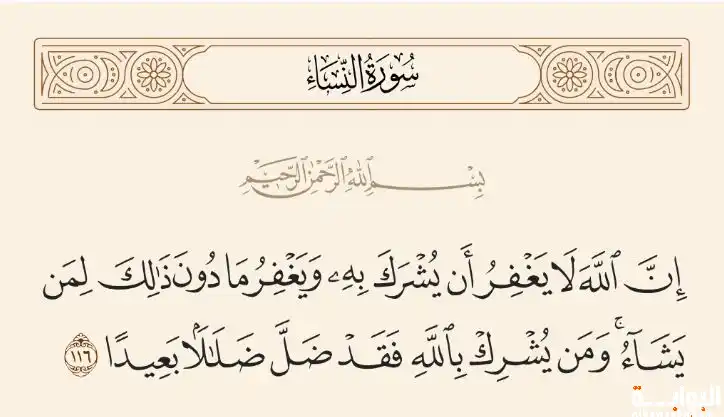 سُورَةُ النِّسَاءِ
بِسْمِ ٱللَّهِ ٱلرَّحْمَٰنِ ٱلرَّحِيمِ
إِنَّ ٱللَّهَ لَا يَغْفِرُ أَن يُشْرَكَ بِهِۦ وَيَغْفِرُ مَا دُونَ ذَٰلِكَ لِمَن
يَشَآءُ ۚ وَمَن يُشْرِكْ بِٱللَّهِ فَقَدْ ضَلَّ ضَلَٰلًۢا بَعِيدًا ١١٦
البوابة